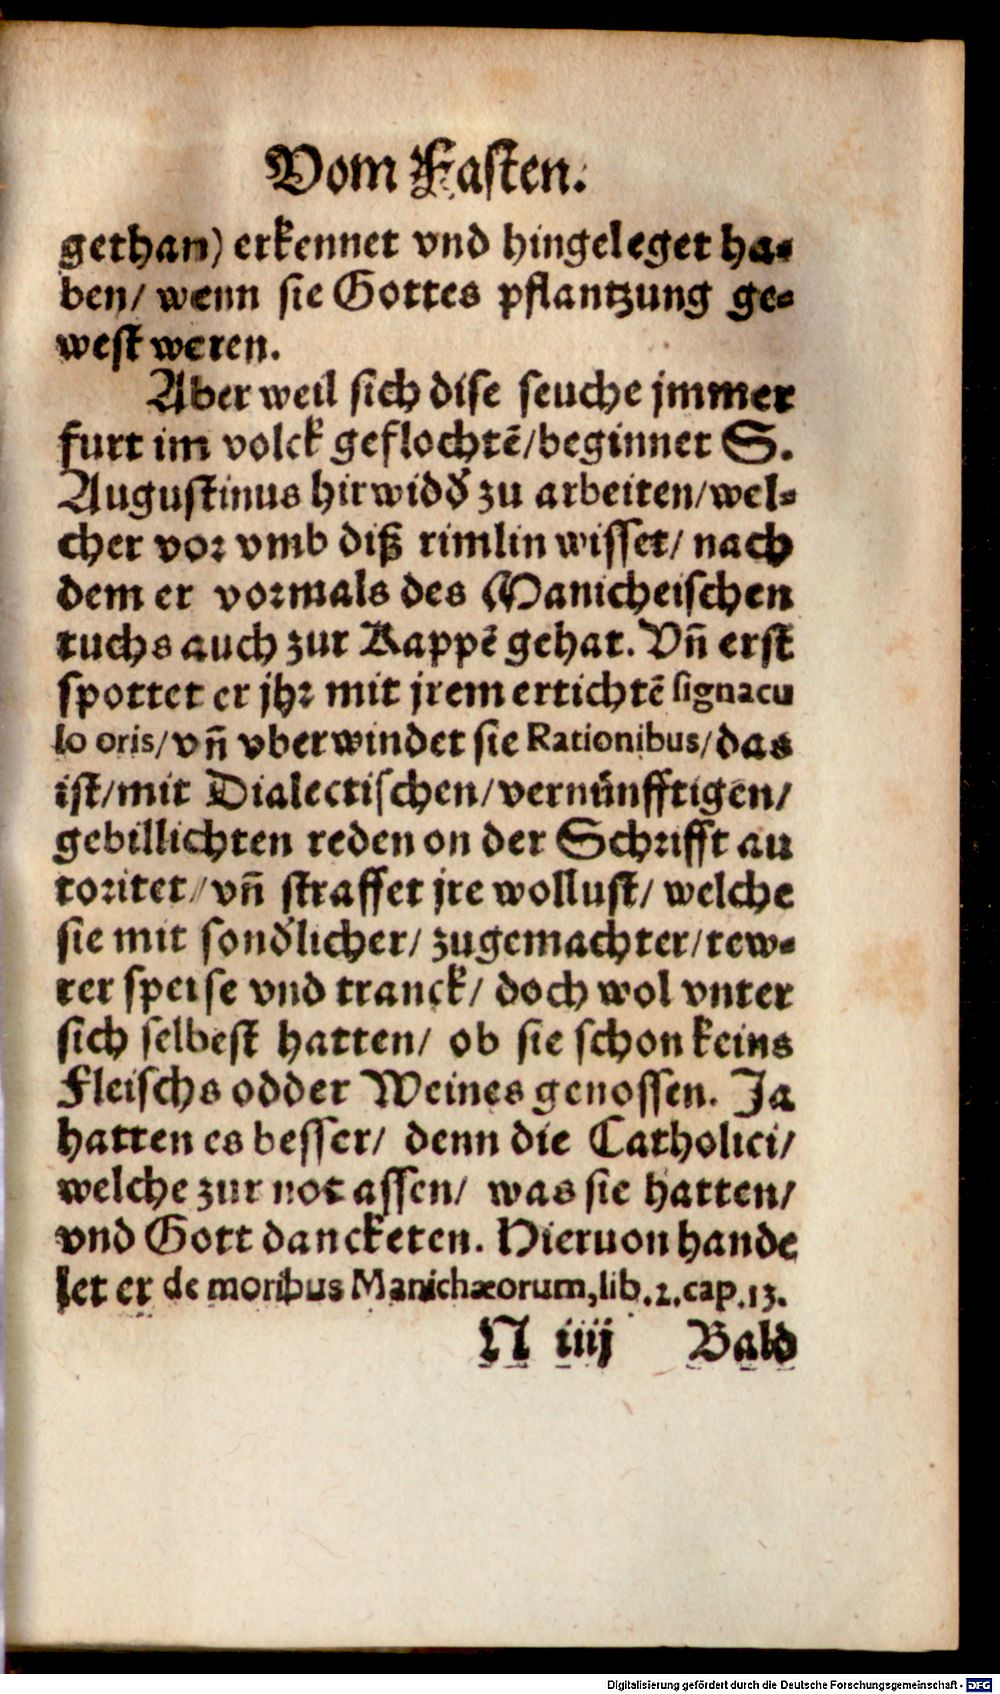 Vom Fasten.
gethan) erkennet vnd hingeleget ha-
ben/ wenn sie Gottes pflantzung ge-
west weren.
Aber weil sich dise seuche jmmer
furt im volck geflochtē/beginnet S.
Augustinus hirwidd̕ zu arbeiten/wel-
cher vor vmb diß rimlin wisset/ nach
dem er vormals des Manicheischen
tuchs auch zur Kappē gehat. Vn̄ erst
spottet er jhr mit jrem ertichtē signacu
lo oris/vn̄ vberwindet sie Rationibus/das
ist/mit Dialectischen/vernünfftigen/
gebillichten reden on der Schrifft au
toritet/vn̄ straffet jre wollust/ welche
sie mit sond̕licher/ zugemachter/tew-
rer speise vnd tranck/ doch wol vnter
sich selbest hatten/ ob sie schon keins
Fleischs odder Weines genossen. Ja
hatten es besser/ denn die Catholici/
welche zur not assen/ was sie hatten/
vnd Gott dancketen. Hieruon hande
let er de moribus Manichæorum,lib.2.cap.13.
N iiij Bald
Digitalisierung gefördert durch die Deutsche Forschungsgemeinschaft - DFG